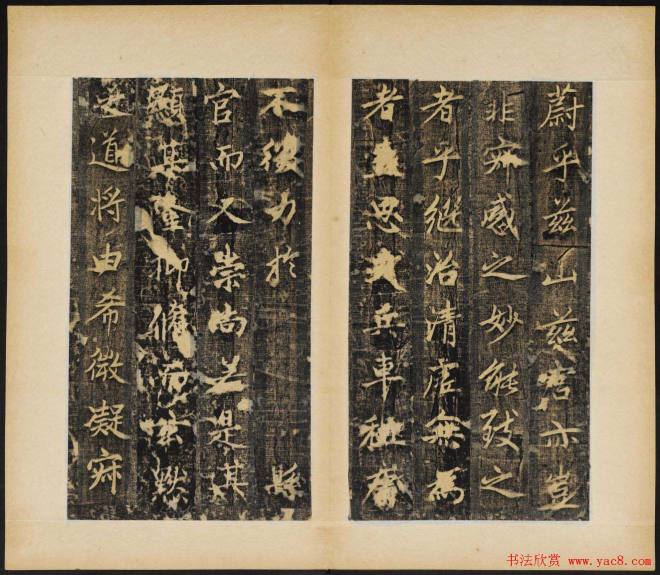 蔚乎茲山茲宮亦豈
非寂感之妙能致之
者乎繼治清虛無為
者思兵車
不役力於縣
官而人崇尚是其
顯隆仰
道將由希微凝寂
书法欣赏 www.yac8.com